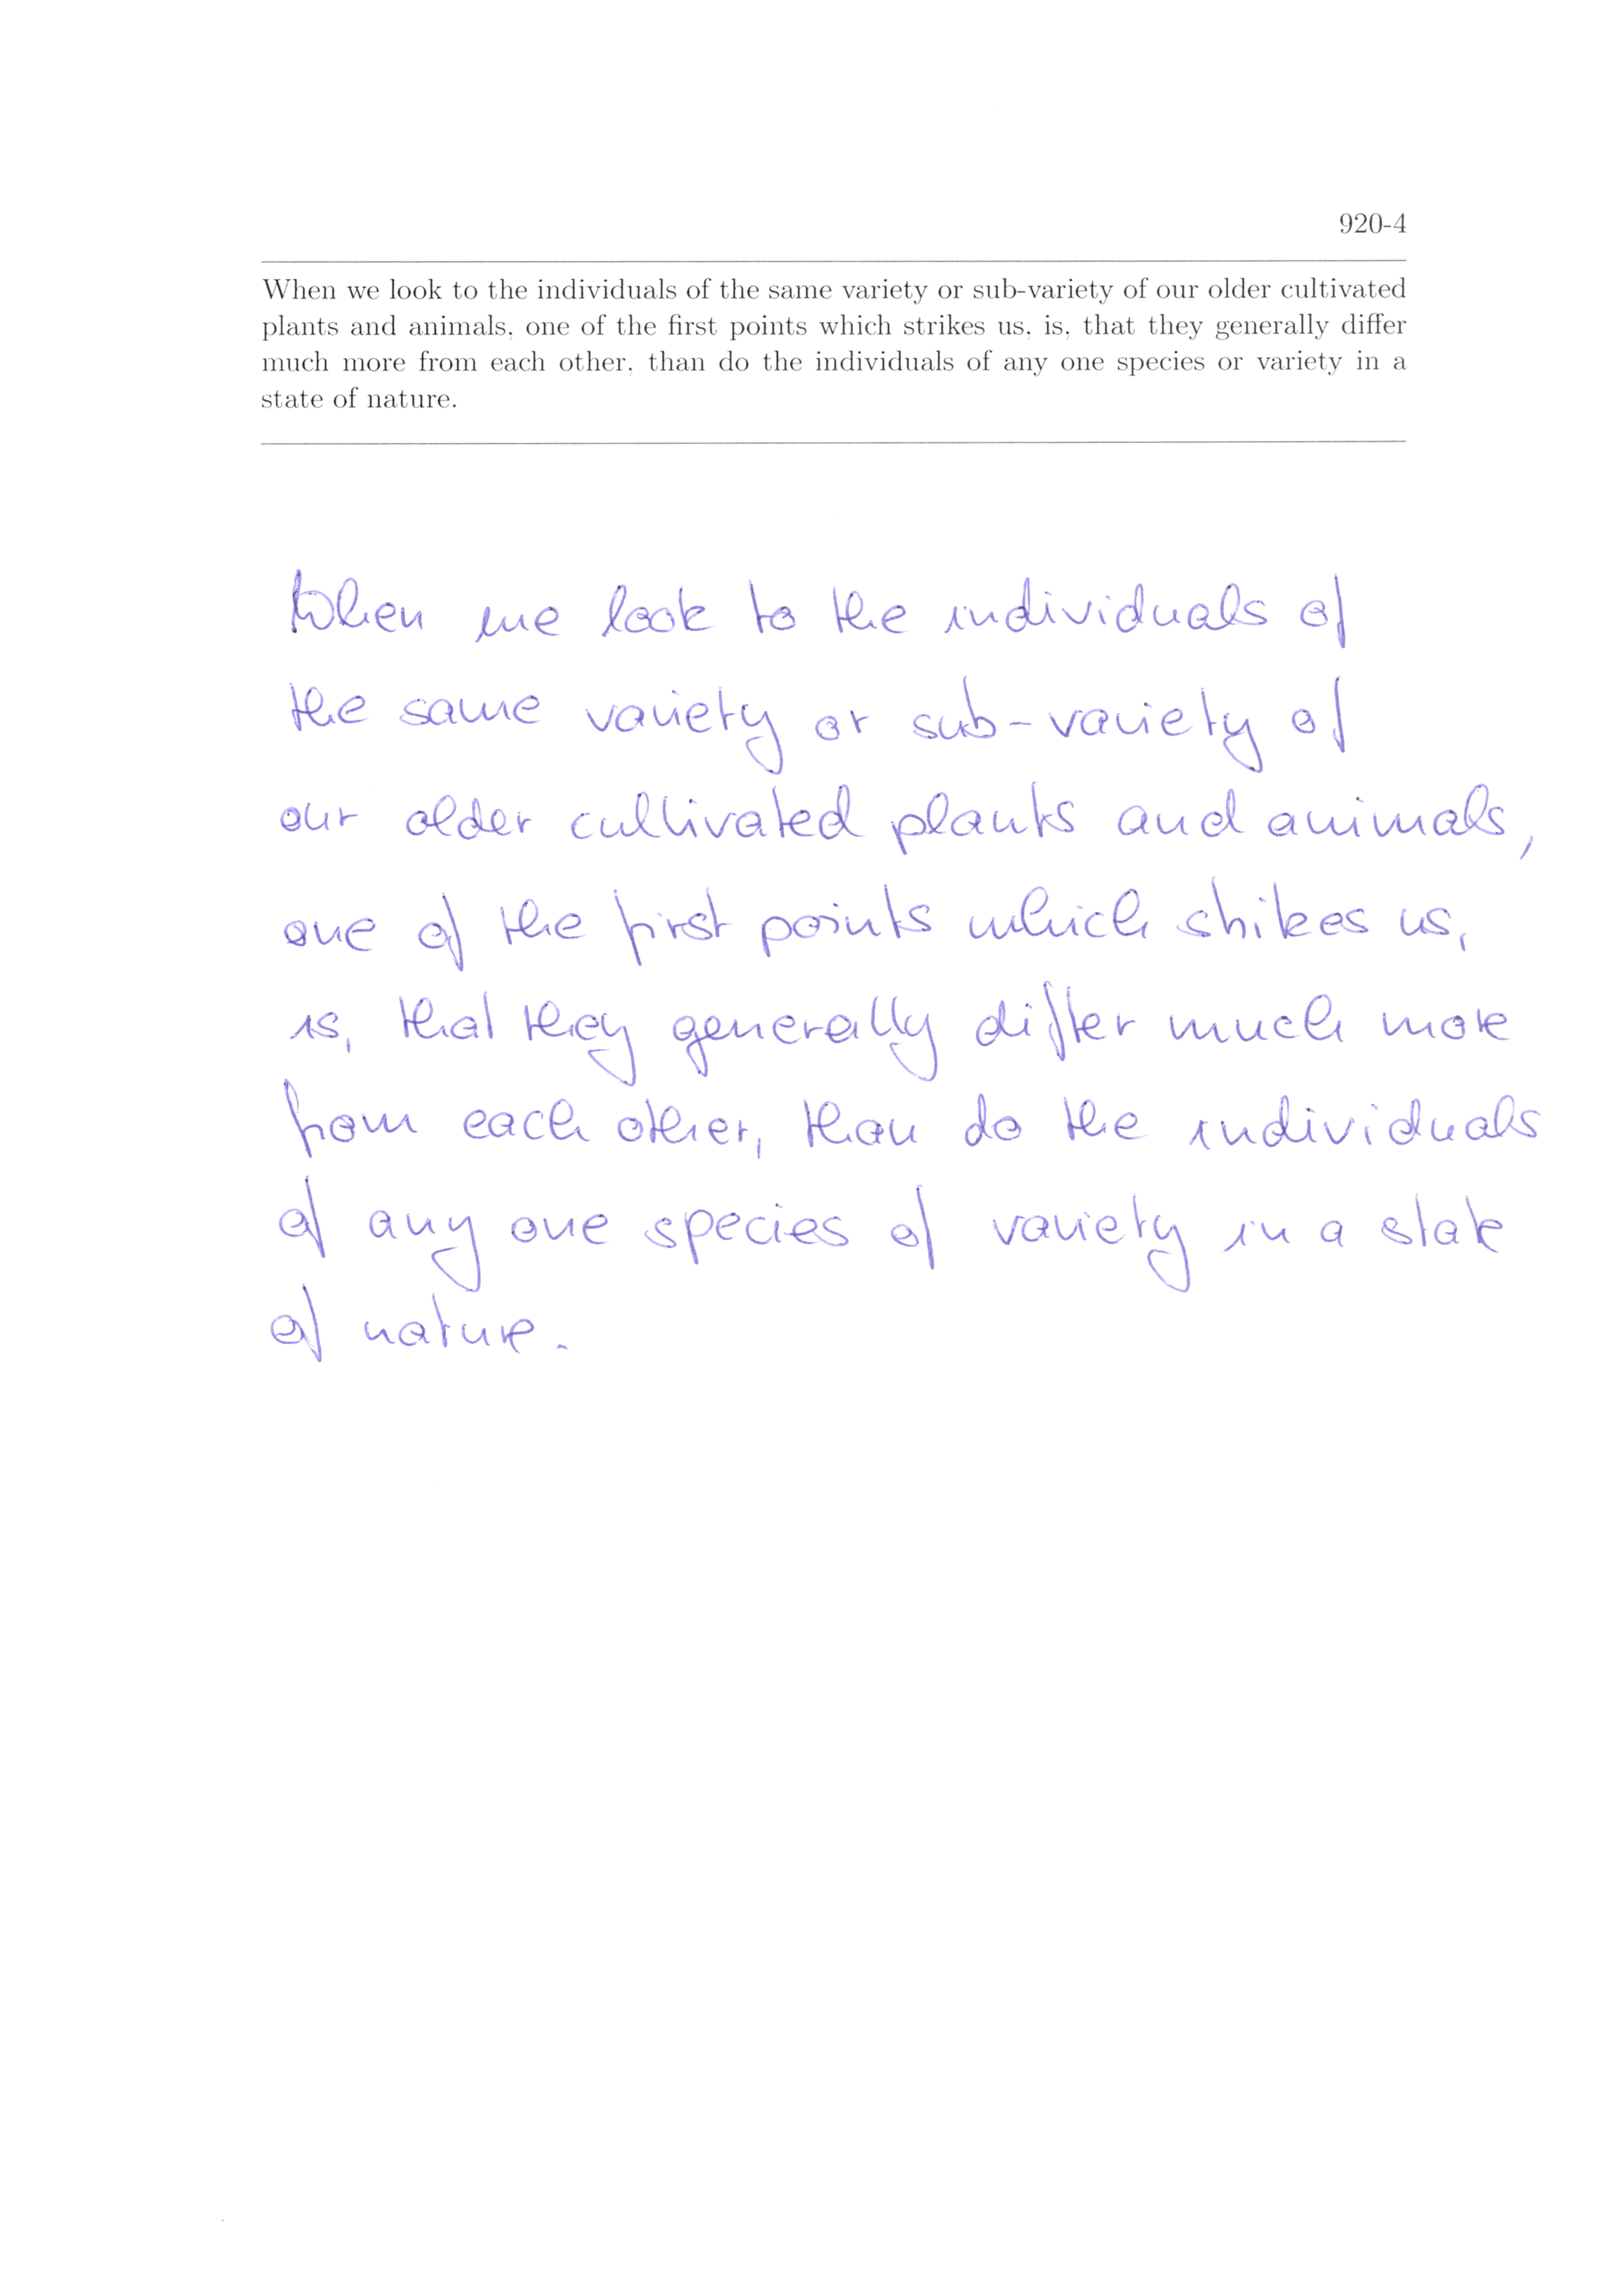 920-4
When we look to the individuals of the same variety or sub-variety of our older cultivated
plants and animals, one of the first points which strikes us, is, that they generally differ
much more from each other, than do the individuals of any one species or variety in a
state of nature.
When we look to the individuals of
the same variety or sub-variety of
our older cultivated plants and animals,
one of the first points which strikes us,
is, that they generally differ much more
from each other, than do the individuals
of any one species of variety in a state
of nature.